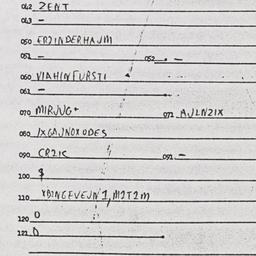 042 ZENT
043 -
050 ERZINDERHAJM
051 - 052 -
060 VIAHINFURSTI
061 -
070 MIRJUG+ 071 AJLNZIX
080 IXGAJNOXODES
090 CRZIC 091 -
100 $
110
120 0
121 0